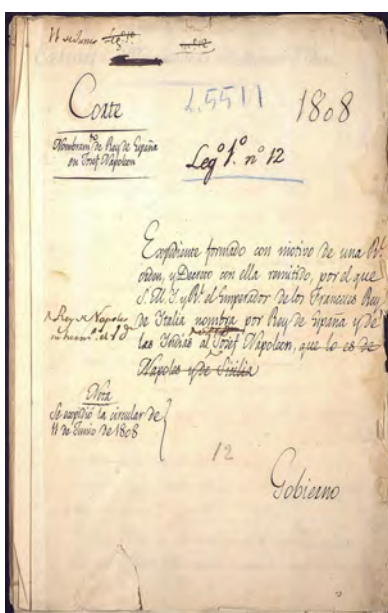 11 de Junio Leg.º 1º.
nº 12
Corte
L. 5511
1808
Nombram.to de Rey de España
en Josef Napoleon
Leg.º 1º. nº 12
Expediente formado con motivo de una Rl.
orden, y Decreto con ella remitido, por el que
S. M. I. y Rl. el Emperador de los Franceses Rey
de Italia nombra por Rey de España y de
las Yndias al Josef Napoleon, que lo es de
Napoles y de Sicilia
Rey de Napoles
su herm.º el
Nota
Se expidió la circular de
11 de Junio de 1808
12
Gobierno